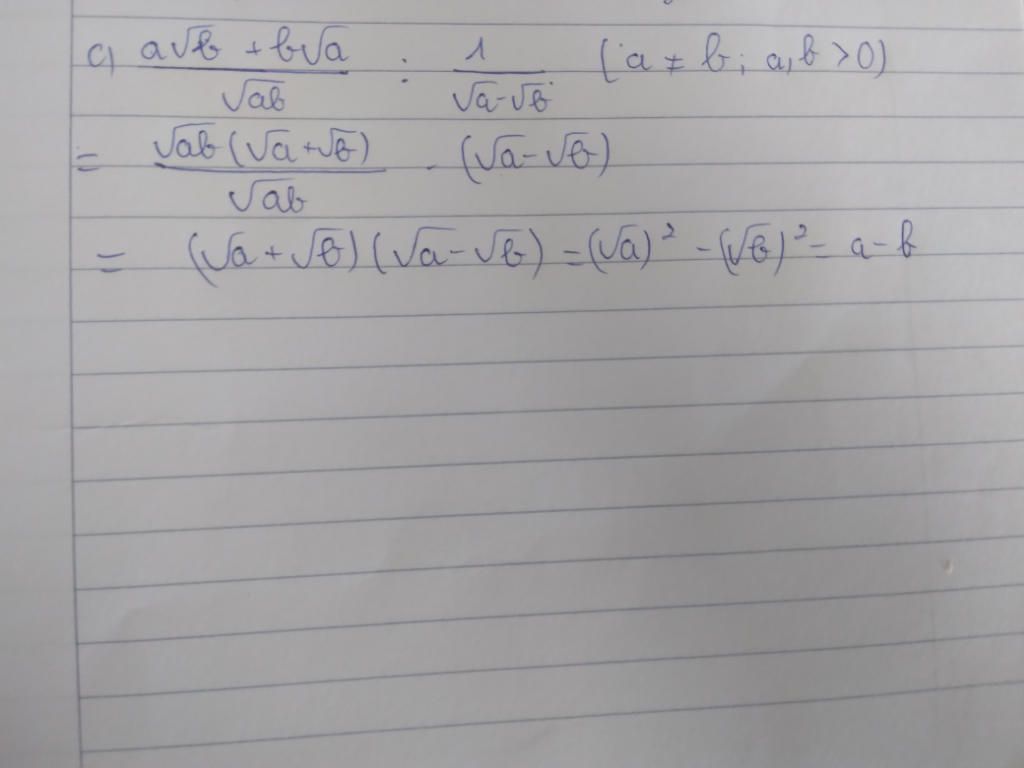 c) a√b + b√a / √ab : 1 / √a-√b (a ≠ b; a,b > 0)
= √ab (√a+√b) / √ab . (√a-√b)
= (√a+√b)(√a-√b) = (√a)² - (√b)² = a - b